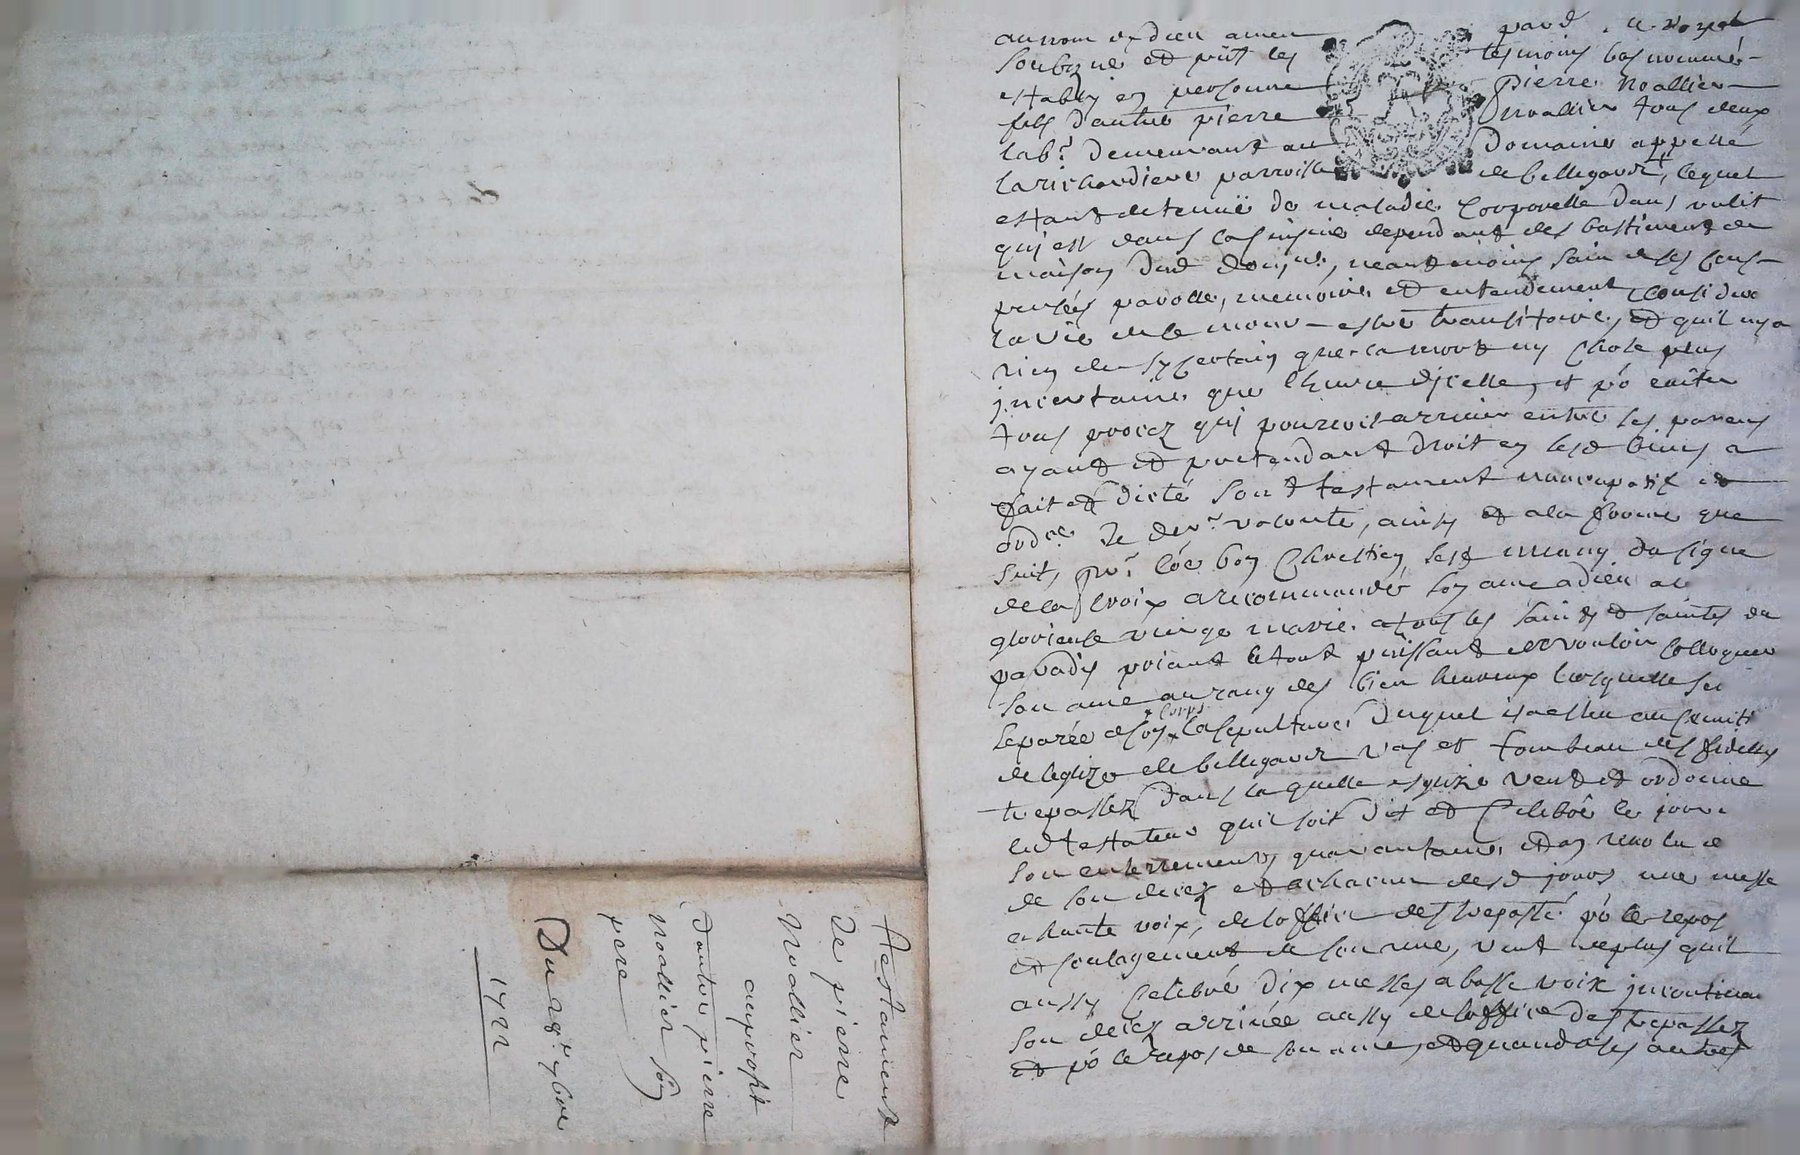 au nom de dieu amen pard. le no.re
soubzne et pnt les tesmoins bas nommé
estably en personne Pierre Noallier
fils d'autre pierre Noallier tous deux
lab.r demeurant au Domaine appellé
la richardiere parroisse de bellegarde, lequel
estant detenuë de maladie Corporelle dans un lit
qui est dans la cuisine dependant des bastiment de
maison dud dom.ne, neantmoins sain de ses sens
pensées parolle, memoire et entendement consideré
la vie de ce monde estre transitoire, et quil ny a
rien de sy certain que la mort ny chose plus
jncertaine que lheure d'jcelle, et po eviter
tous procez qui pourroit arriver entre ses parens
ayant et pretendant droit en sesd biens a
fait et dicté son d testament noncupatif et
ord.ce de der.e volonté, ainsy et a la forme que
suit, pr.t coe bon Chrestien, sest muny du signe
de la Croix a recommandé son ame a dieu a la
glorieuse vierge marie a tous les saints et saintes du
paradis priant le tout puissant de vouloir colloquer
son ame au rang des bien heureux lorsquelle sera
separée de son corps la sepulture duquel il a esleu au cemiti
de leglize de bellegarde vas et tombeau des fidelles
trepassez dans laquelle esglize veut et ordonne
led testateur quil soit dit et Celebré le jour
son enterrement, quarantaine, et an revolu
de son decez et a chacun desd jours une messe
a haute voix, de loffice des trepassé po le repos
et soulagement de son ame, veut deplus quil
aussy Celebré dix messes a basse voix jncontinan
son decez arrivée aussy de loffice des trepassez
et po le repos de son ame, et quand a ses autres
Testament
de pierre
Noallier
au profit
dautre pierre
Noallier son
pere
Du 28.e 9bre
1722